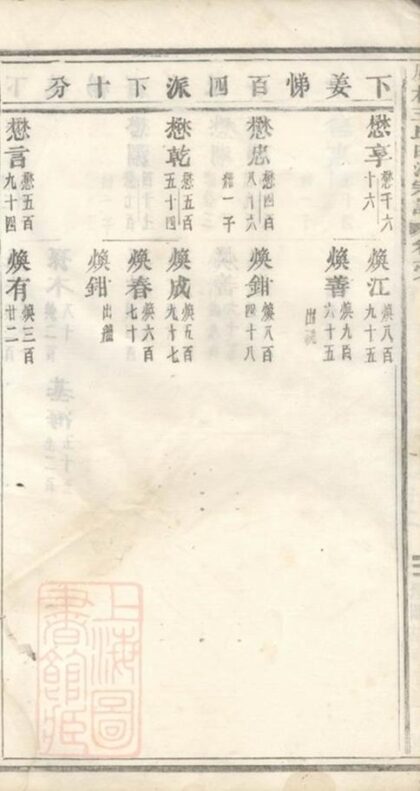 下姜悌百四派下十分
懋享 懋千六十六
懋忠 懋四百八十六 繼一子
懋乾 懋五百五十四
懋言 懋五百九十四
煥江 煥八百九十五
煥善 煥九百六十五 出
煥鉗 煥八百四十八
煥成 煥五百九十七
煥春 煥六百七十四
煥鉗 出繼
煥有 煥三百廿二
上海圖書館